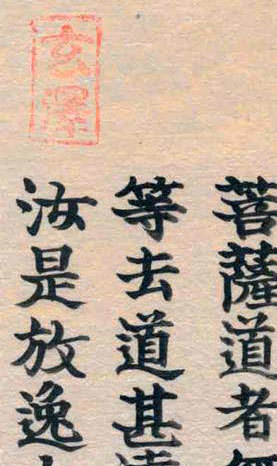 玄澤
菩薩道者
等去道甚
汝是放逸